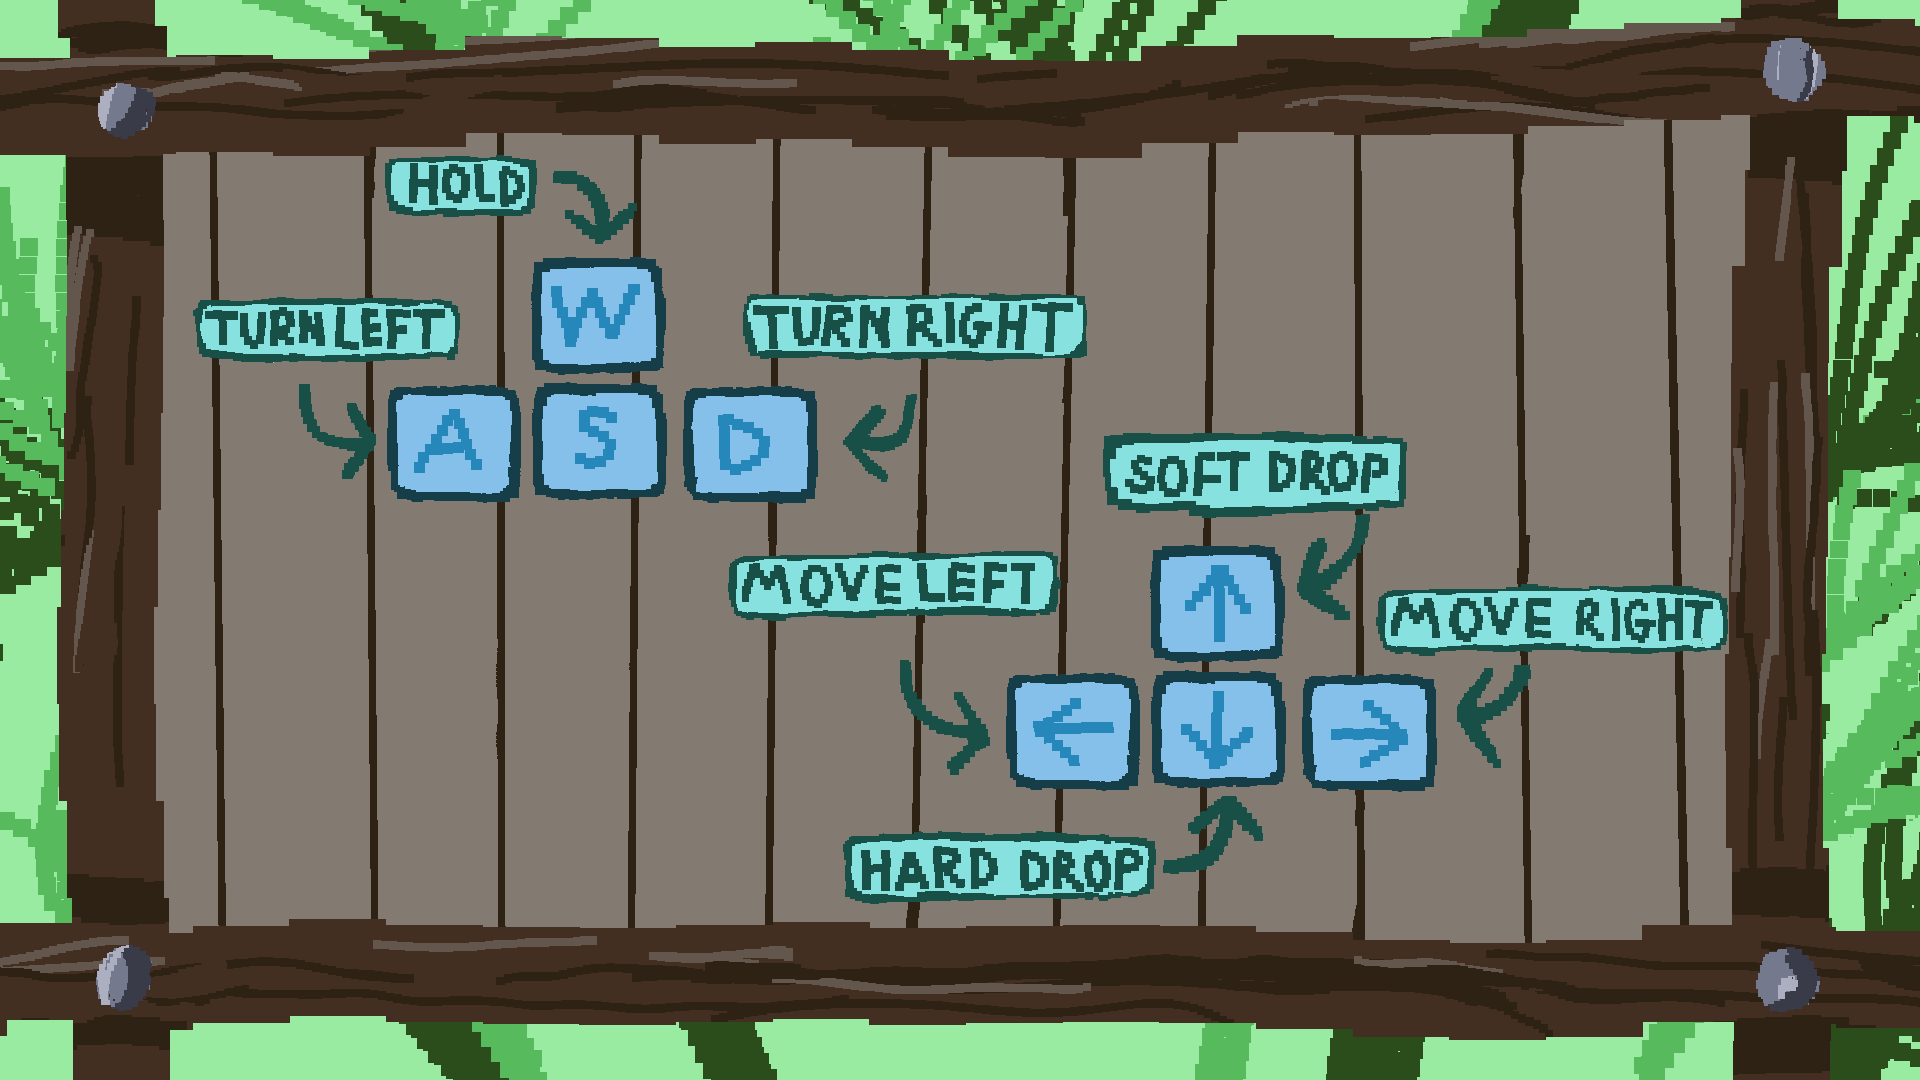 HOLD
TURN LEFT
W
TURN RIGHT
A S D
SOFT DROP
MOVE LEFT
↑
MOVE RIGHT
← ↓ →
HARD DROP